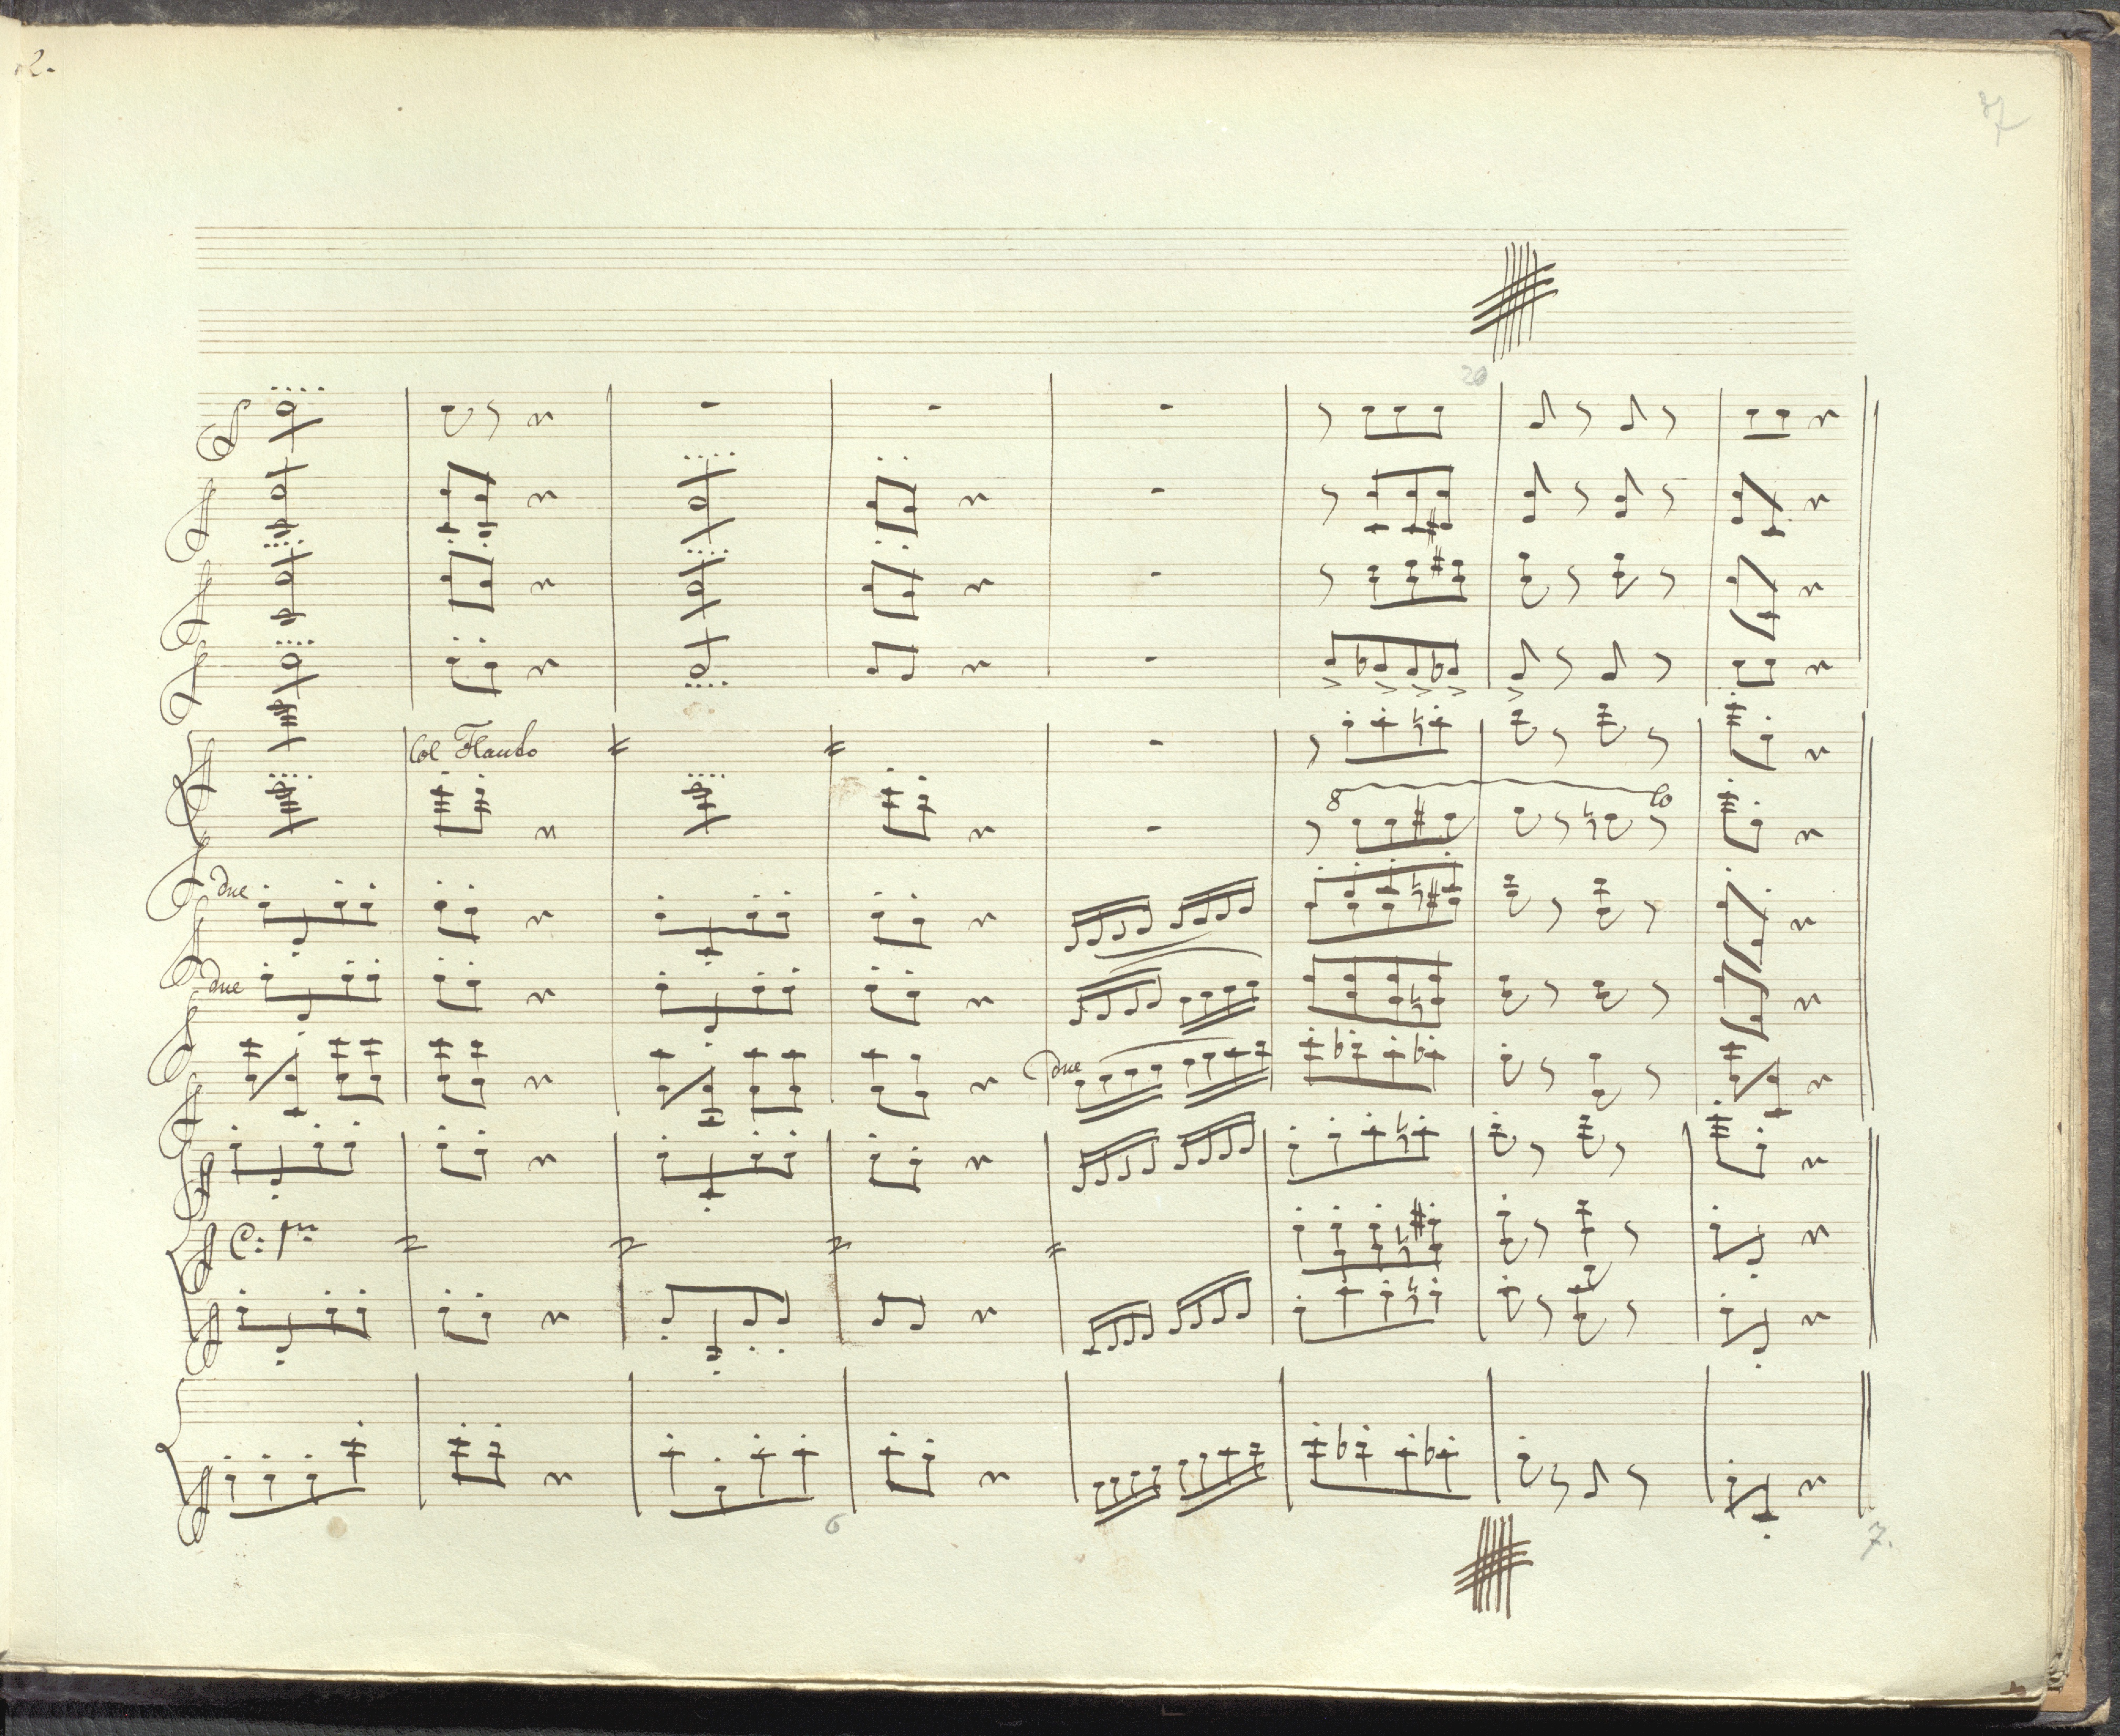 2.
37
20
Col Flauto
8 lo
due
due
due
C: pmo
6
7.